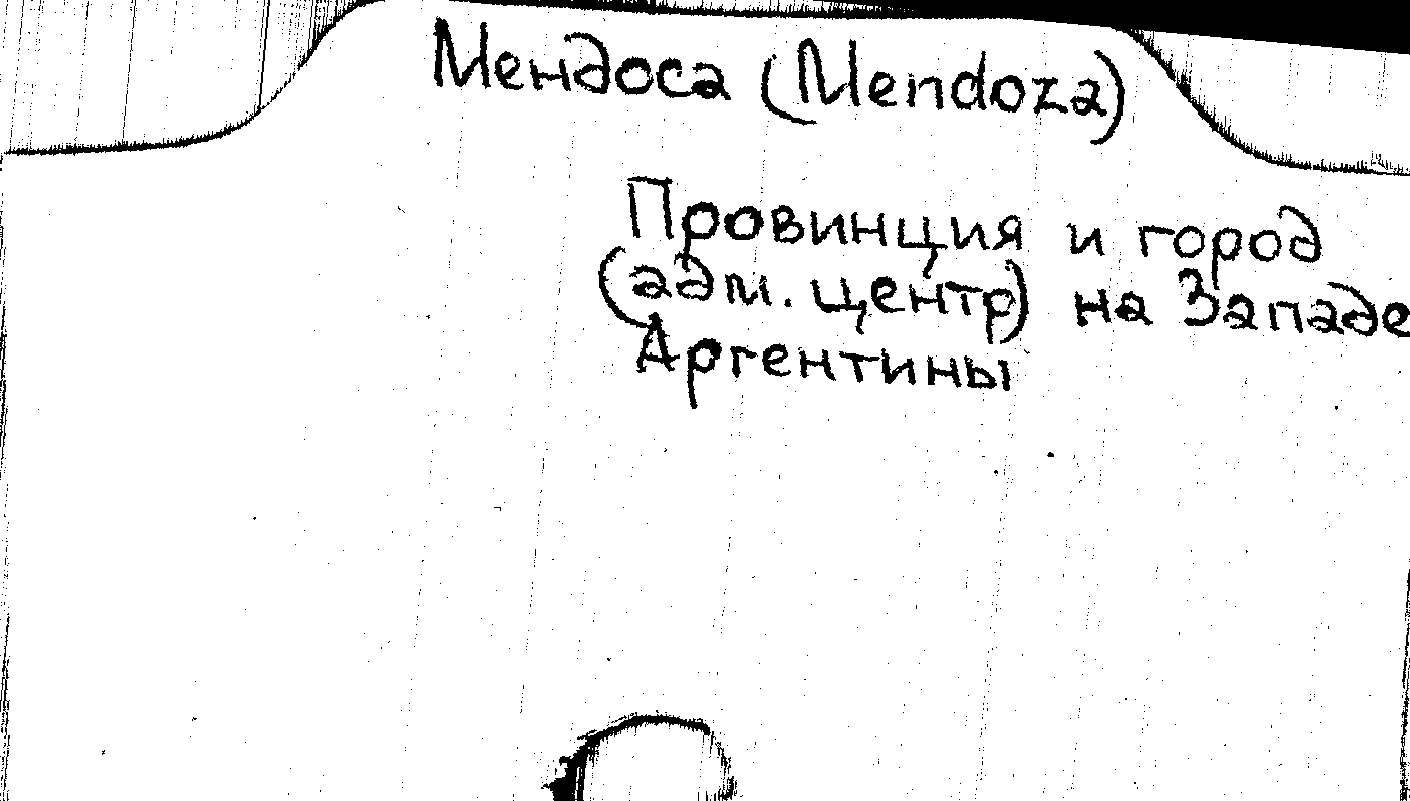 Мендоса (Mendoza)
Провинция и город
(адм. центр) на Западе
Аргентины